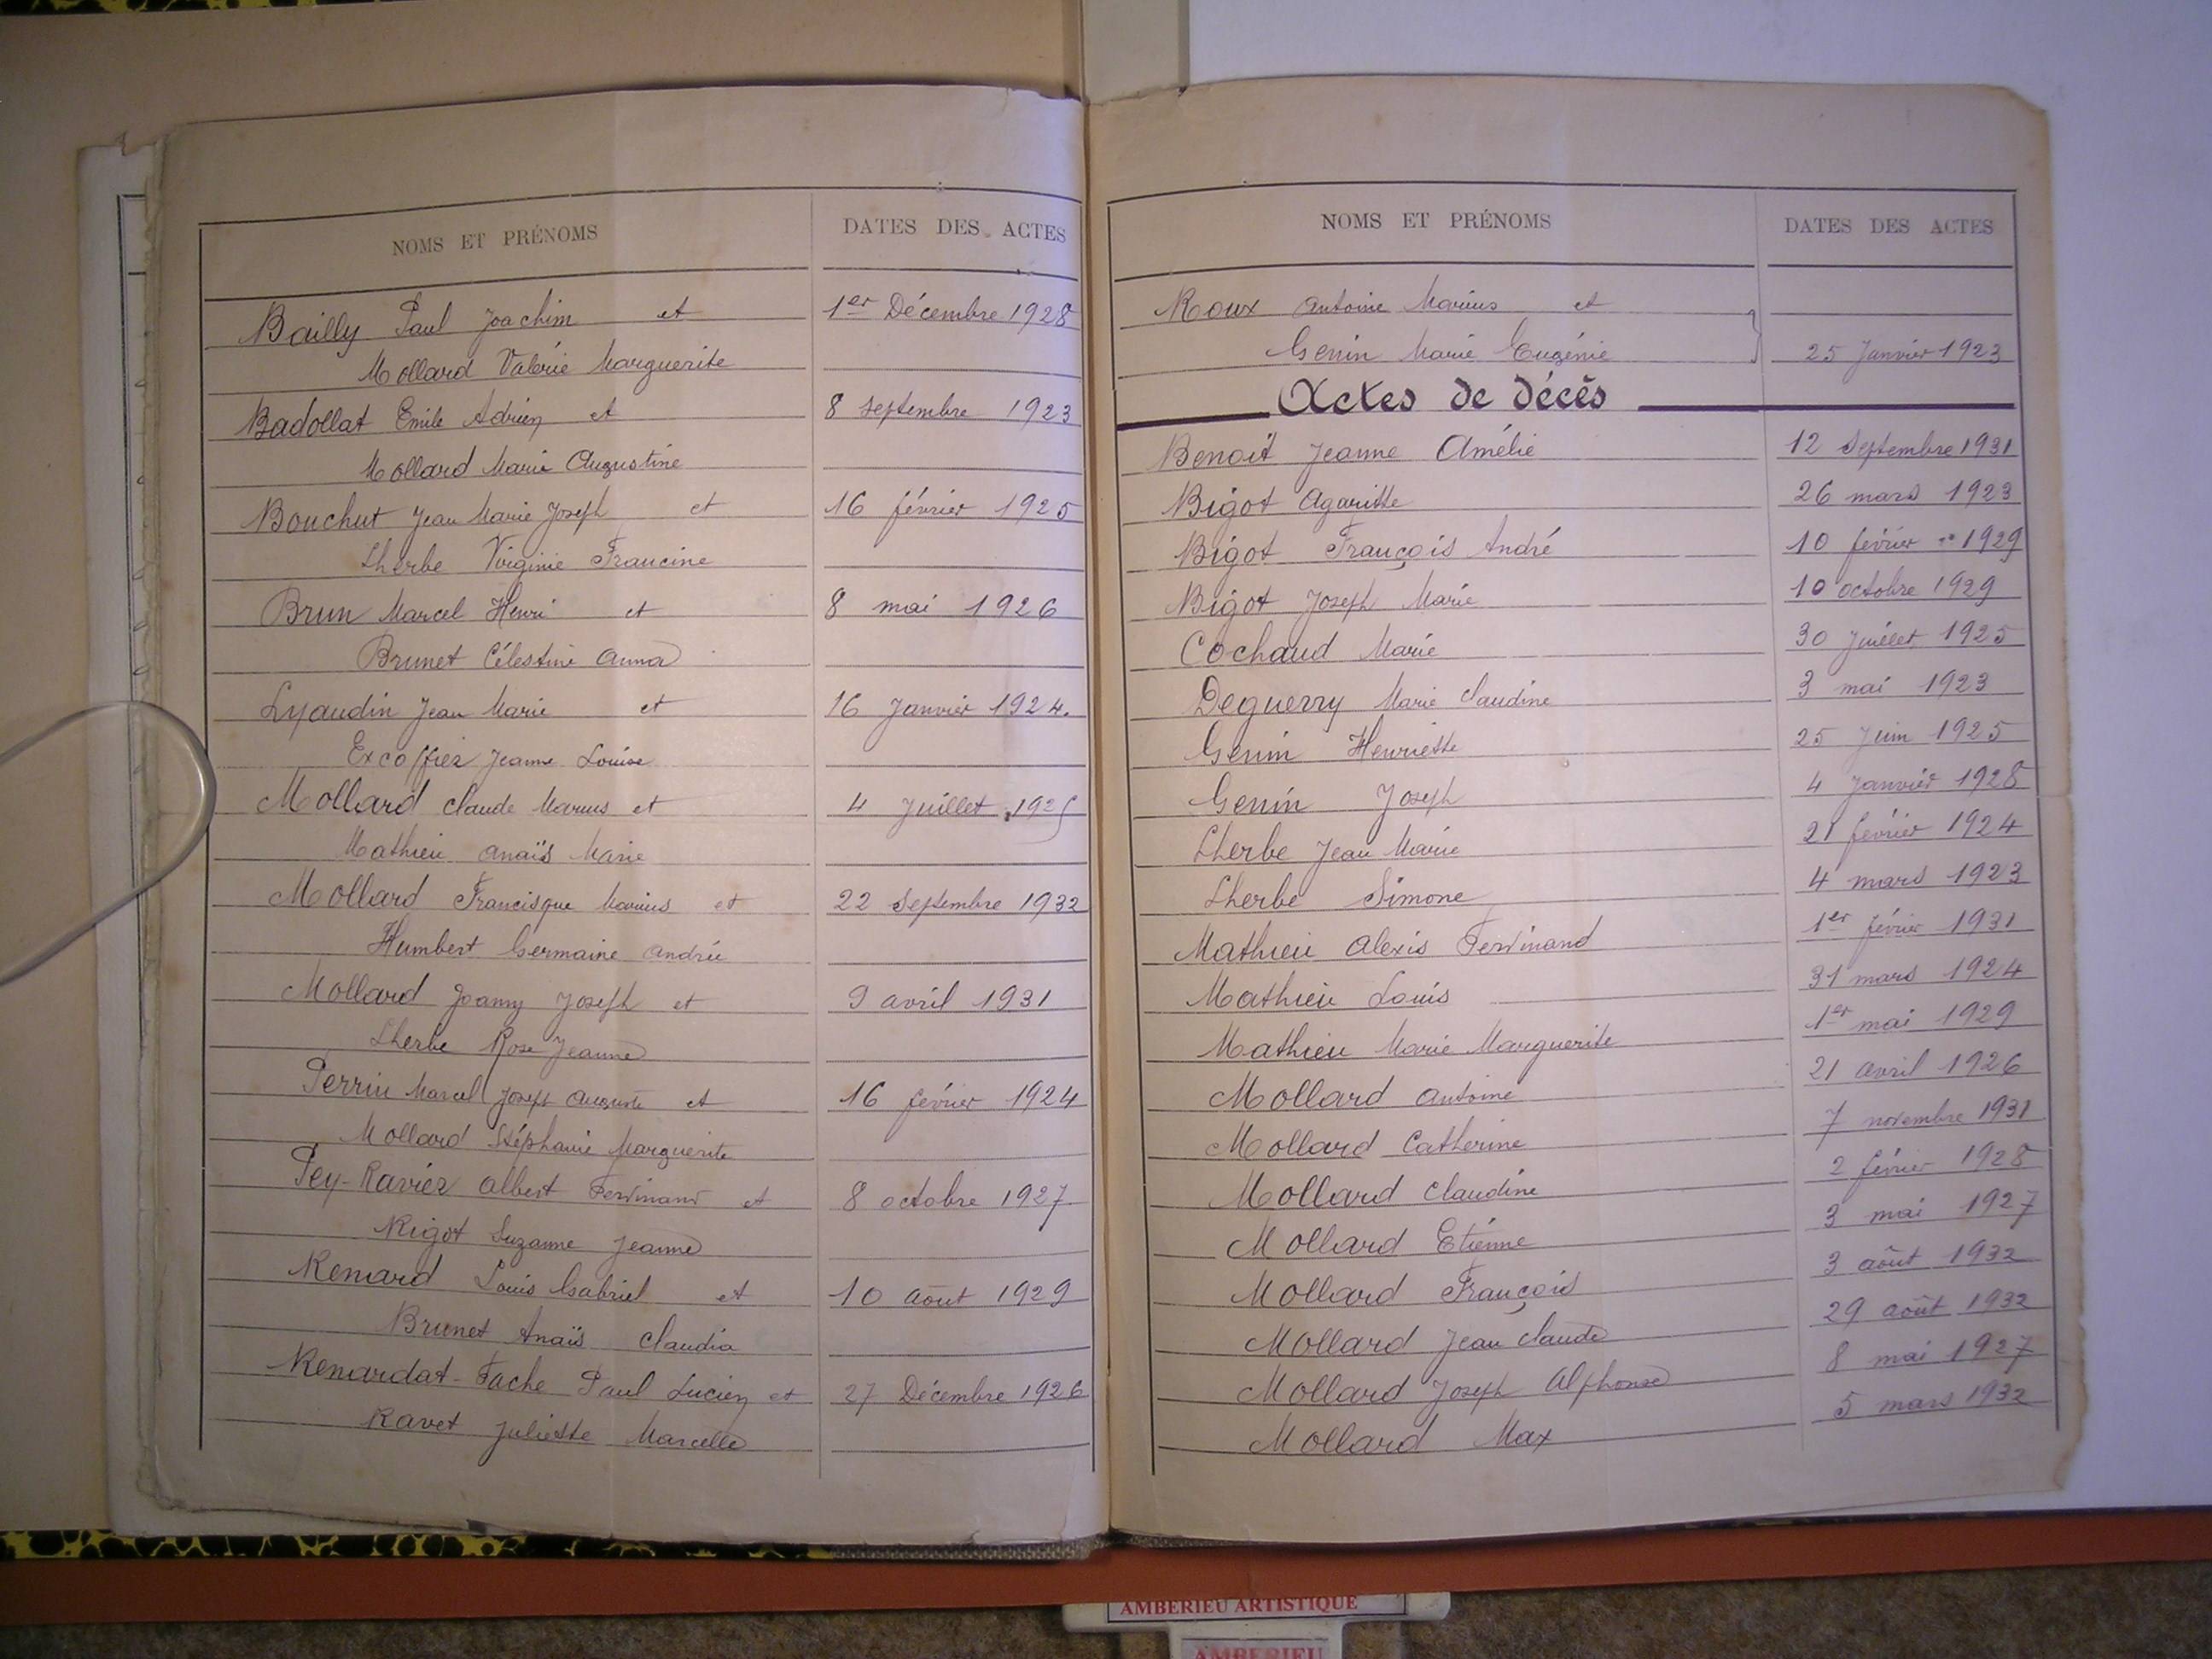 NOMS ET PRÉNOMS DATES DES ACTES
Bailly Paul Joachim et 1er Décembre 1928
Mollard Valérie Marguerite
Badollat Emile Adrien et 8 Septembre 1923
Mollard Marie Augustine
Bouchut Jean Marie Joseph et 16 février 1925
Lherbe Virginie Francine
Brun Marcel Henri et 8 mai 1926
Brunet Célestine Anna
Lyaudin Jean Marie et 16 Janvier 1924.
Excoffier Jeanne Louise
Mollard Claude Marius et 4 Juillet 1925
Mathieu Anaïs Marie
Mollard Francisque Marius et 22 Septembre 1932
Humbert Germaine Andrée
Mollard Joanny Joseph et 9 avril 1931
Lherbe Rose Jeanne
Perrin Marcel Joseph Auguste et 16 février 1924
Mollard Stéphanie Marguerite
Pey-Ravier Albert Ferdinand et 8 octobre 1927
Rigot Suzanne Jeanne
Renard Louis Gabriel et 10 Août 1929
Brunet Anaïs Claudia
Renardat-Fache Paul Lucien et 27 Décembre 1926
Ravet Juliette Marcelle
NOMS ET PRÉNOMS DATES DES ACTES
Roux Antoine Marius et
Genin Marie Eugénie 25 Janvier 1923
Actes de décès
Benoit Jeanne Amélie 12 Septembre 1931
Bigot Agaritte 26 mars 1923
Bigot François André 10 février 1929
Bigot Joseph Marie 10 octobre 1929
Cochaud Marie 30 Juillet 1925
Deguerry Marie Claudine 3 mai 1923
Genin Henriette 25 Juin 1925
Genin Joseph 4 Janvier 1928
Lherbe Jean Marie 21 février 1924
Lherbe Simone 4 mars 1923
Mathieu Alexis Ferdinand 1er février 1931
Mathieu Louis 31 mars 1924
Mathieu Marie Marguerite 1er mai 1929
Mollard Antoine 21 avril 1926
Mollard Catherine 7 novembre 1931
Mollard Claudine 2 février 1928
Mollard Etienne 3 mai 1927
Mollard François 3 août 1932
Mollard Jean Claude 29 août 1932
Mollard Joseph Alphonse 8 mai 1927
Mollard Max 5 mars 1932
AMBERIEU ARTISTIQUE
AMBERIEU